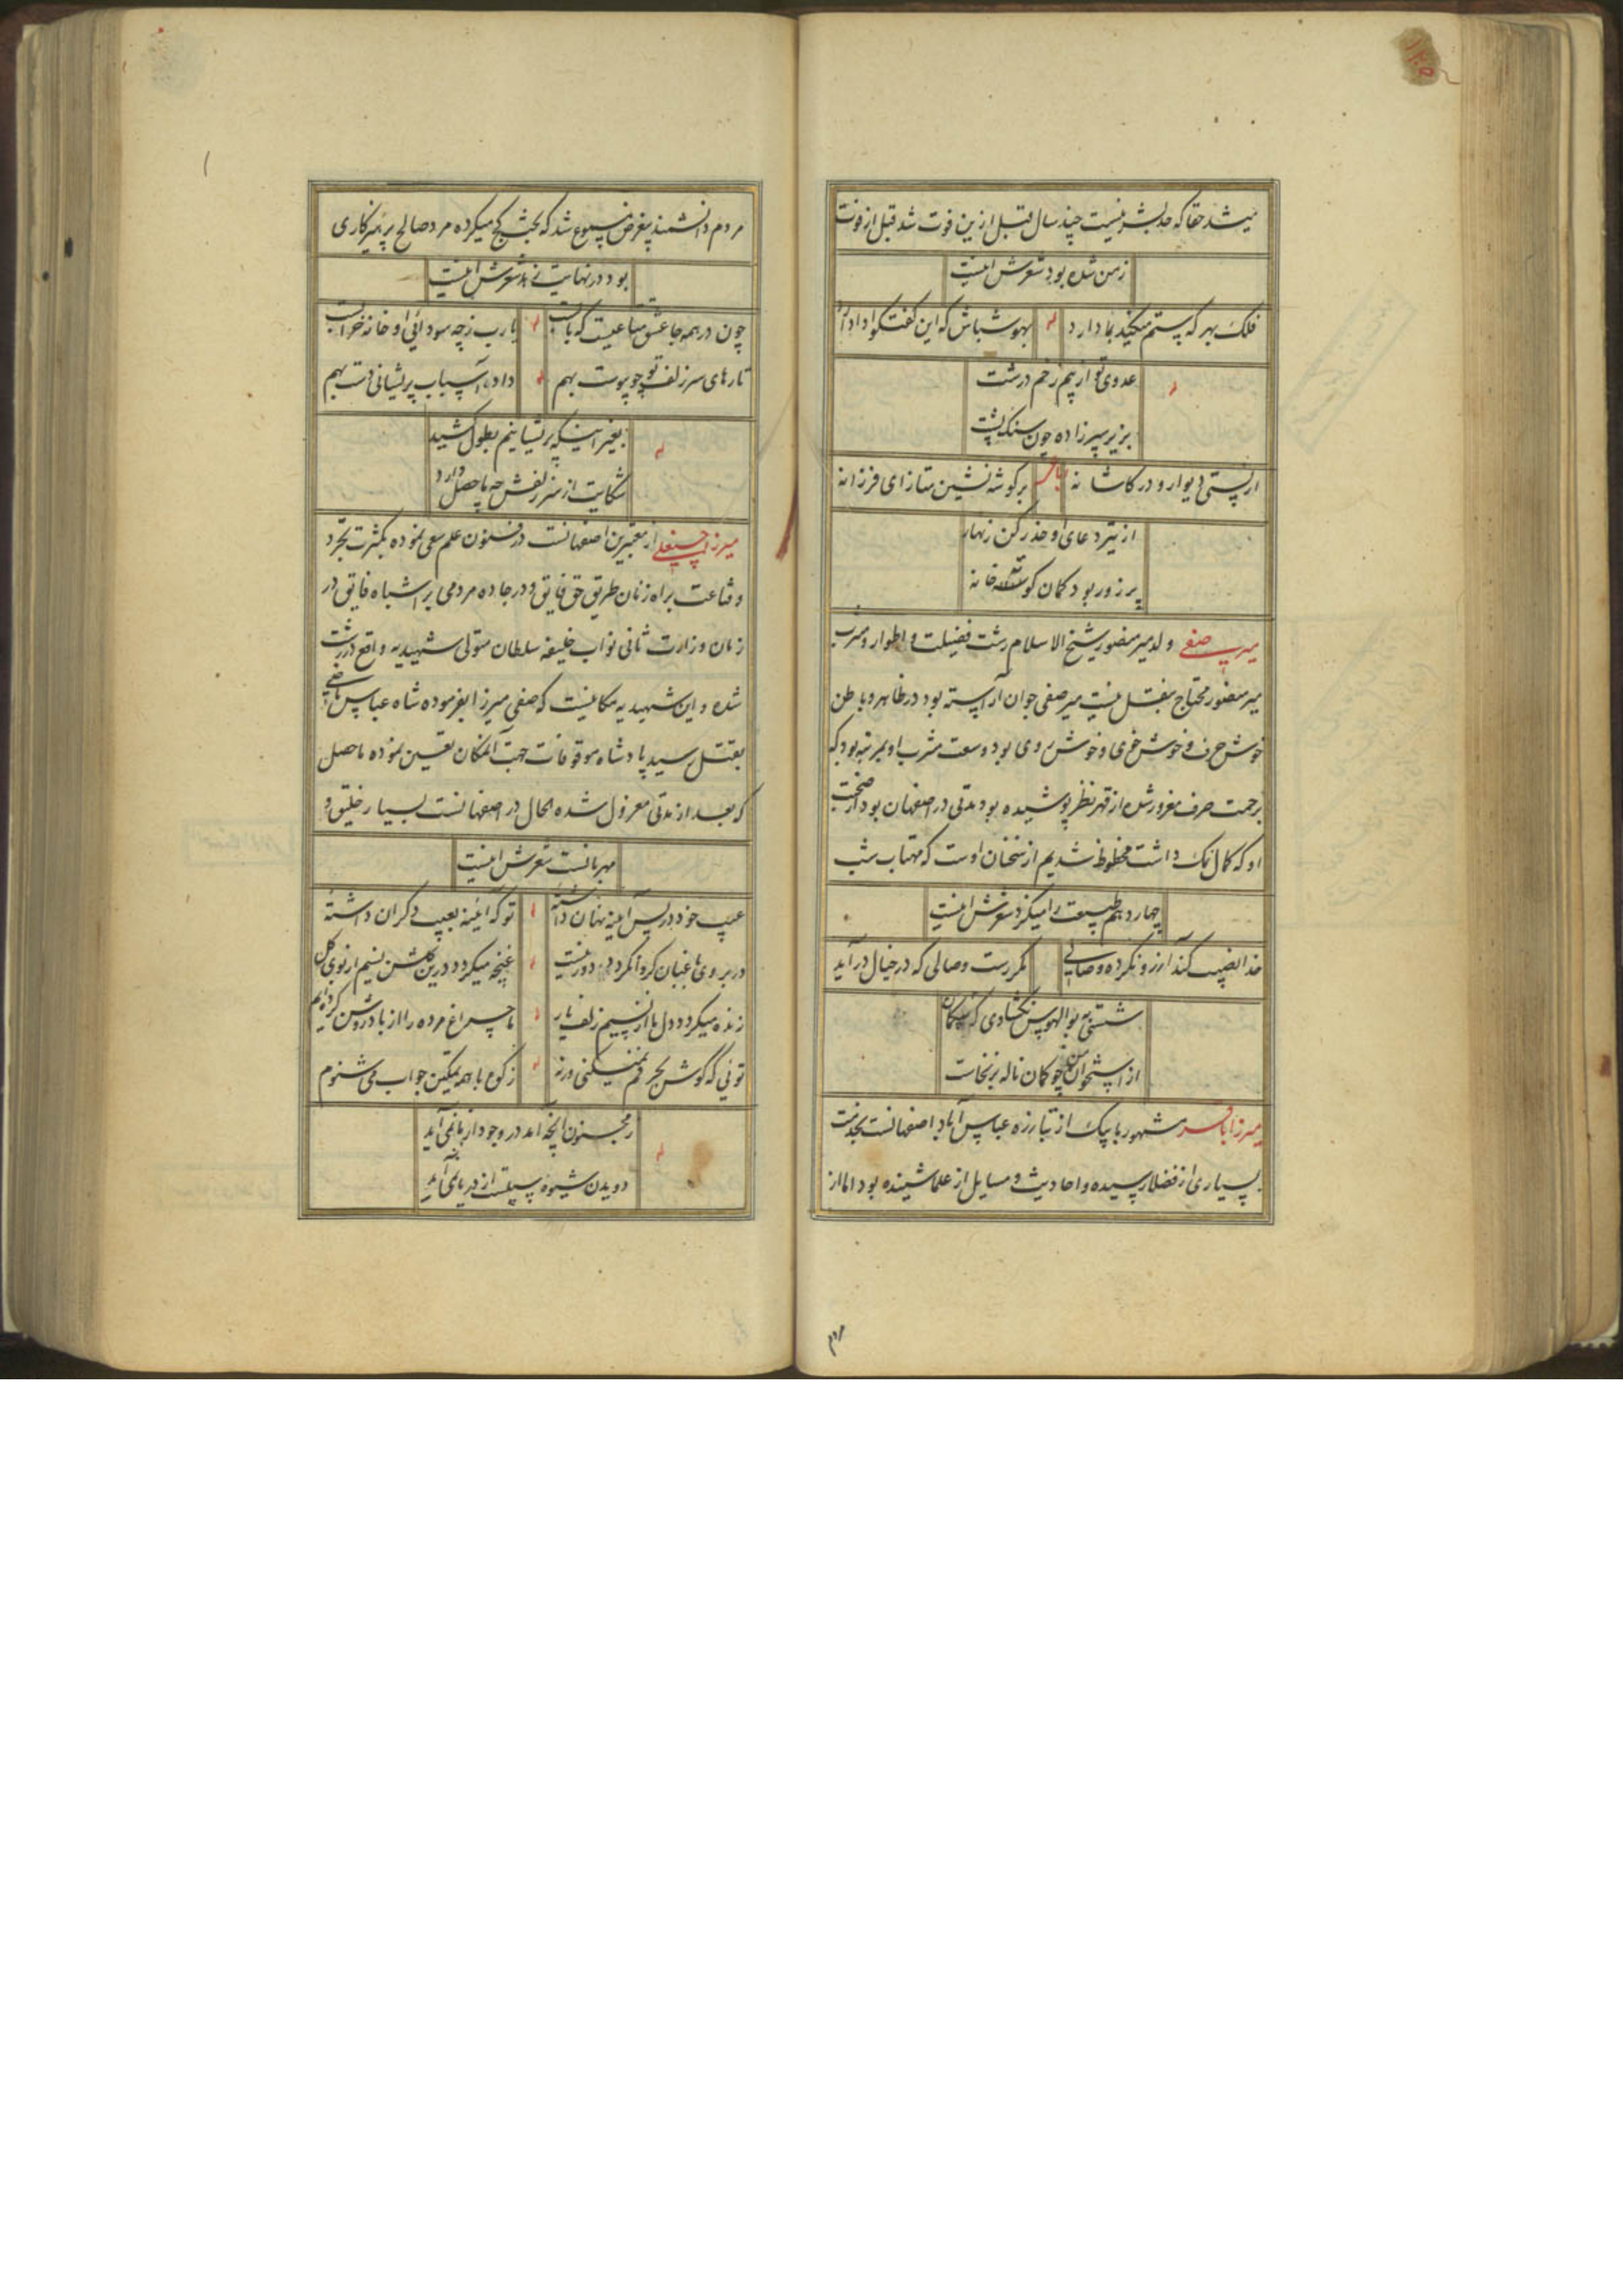 میشد حقا که حد بشر نیست چند سال قبل ازین فوت شد قبل از فوت
زمن شده بود شعرش اینست
فلک بهر که ستم میکند بما دارد
بهوش باش که این گفتگو ادا دارد
عدوی تو از بیم زخم درشت
بزیر سپر زاده چون سنگ پشت
از پستی دیوار و در کاشانه
بر گوشه نشین متاز ای فرزانه
از تیر دعای او حذر کن زنهار
پر زور بود کمان گوشه خانه
میر صفی ولد میر منصور شیخ الاسلام رشت فضیلت و اطوار و مشرب
میر منصور محتاج بنقل نیست میر صفی جوان آراسته بود در ظاهر و باطن
خوش حرف و خوش خوی و خوش روی بود وسعت مشرب او بمرتبه بود که
برحمت حرف مغرور شده از قهر نظر پوشیده بود مدتی در اصفهان بود از صحبت
او که کمال نمک داشت محظوظ شدیم از سخنان اوست که مهتاب شب
چهاردهم طبیعت را میگزد شعرش اینست
خدا نصیب کند آرزو نکرده وصالی
مکررست وصالی که در خیال در آید
شستی به بوالهوس نگشادی که
از استخوان من چو کمان ناله برنخاست
میرزا باقر مشهور بابیک از تبارزه عباس آباد اصفهانست بخدمت
بسیاری از فضلا رسیده و احادیث و مسایل از علما شنیده بود اما از
مردم
مردم دانشمند بیغرض مسموع شد که بحث کج میکرده مرد صالح پرهیزکاری
بود در نهایت زهد شعرش اینست
چون در همه جا عشق متاعیست که بابست
یارب ز چه سودائی او خانه خرابست
تارهای سر زلف تو چو پیوست بهم
داد اسباب پریشانی دست بهم
بغیر اینکه پریشانیم بطول کشید
شکایت از سر زلفش چه حاصل دارد
میرزا حسینعلی از معتبرین اصفهانست در فنون علم سعی نموده بکثرت تجرد
و قناعت براه زنان طریق حق فایق و در جاده مردمی بر اشباه فایق در
زمان وزارت ثانی نواب خلیفه سلطان متولی شهیدیه واقع در رشت
شده و این شهیدیه مکانیست که صفی میرزا بفرموده شاه عباس ماضی
بقتل رسید پادشاه موقوفات جهت آنمکان تعیین نموده ماحصل
که بعد از مدتی معزول شده الحال در اصفهانست بسیار خلیق و
مهربانست شعرش اینست
عیب خود در پس آینه نهان داشتهٔ
تو که آئینه بعیب دگران داشتهٔ
در بروی باغبان گر وا نگردد دور نیست
غنچه میگردد درین گلشن نسیم از بوی گل
زنده میگردد دل ما از نسیم زلف یار
ما چراغ مرده را از باد روشن کرده‌ایم
توئی که گوش بحرفم نمیکنی ورنه
ز کوه با همه تمکین جواب می شنوم
ز مجنون آنچه آمد در وجود از ما نمی آید
دویدن شیوه سیلست از دریا نمی آید